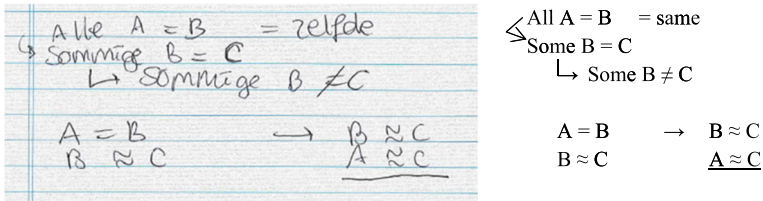 Alle A = B = zelfde
Sommige B = C
↳ Sommige B ≠ C
A = B → B ≈ C
B ≈ C A ≈ C
All A = B = same
Some B = C
↳ Some B ≠ C
A = B → B ≈ C
B ≈ C A ≈ C